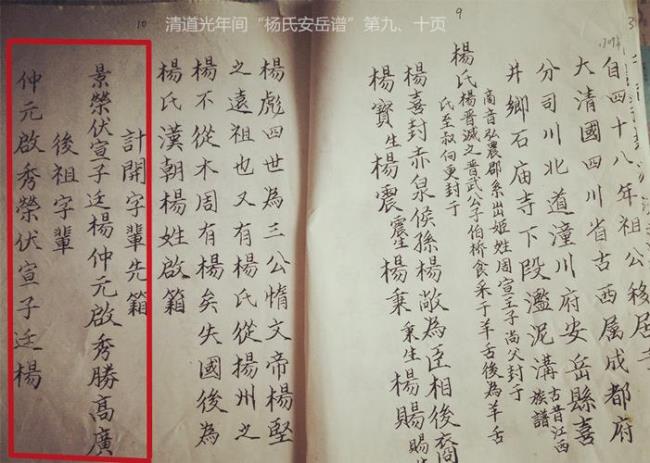 清道光年间“杨氏安岳谱”第九、十页
9
自四十八年祖公移居于
大清國四川省古西属成都府
分司川北道潼川府安岳縣喜
井鄉石庙寺下段濫泥溝古昔江西族譜
商音弘農郡系出姬姓周宣王子尚父封于
楊氏楊晋滅之晋武公子伯桥食采于羊舌後為羊舌
氏至叔向更封于
楊喜封赤泉侯孫楊敞為臣相後裔
楊寳生楊震震生楊秉秉生楊賜賜
10
楊彪四世為三公惰文帝楊堅
之遠祖也又有楊氏從揚州之
楊不從木周有楊矣失國後為
楊氏漢朝楊姓啟箱
計開字輩先籍
景榮伏宣子廷楊仲元啟秀勝高廣
後祖字輩
仲元啟秀榮伏宣子廷楊